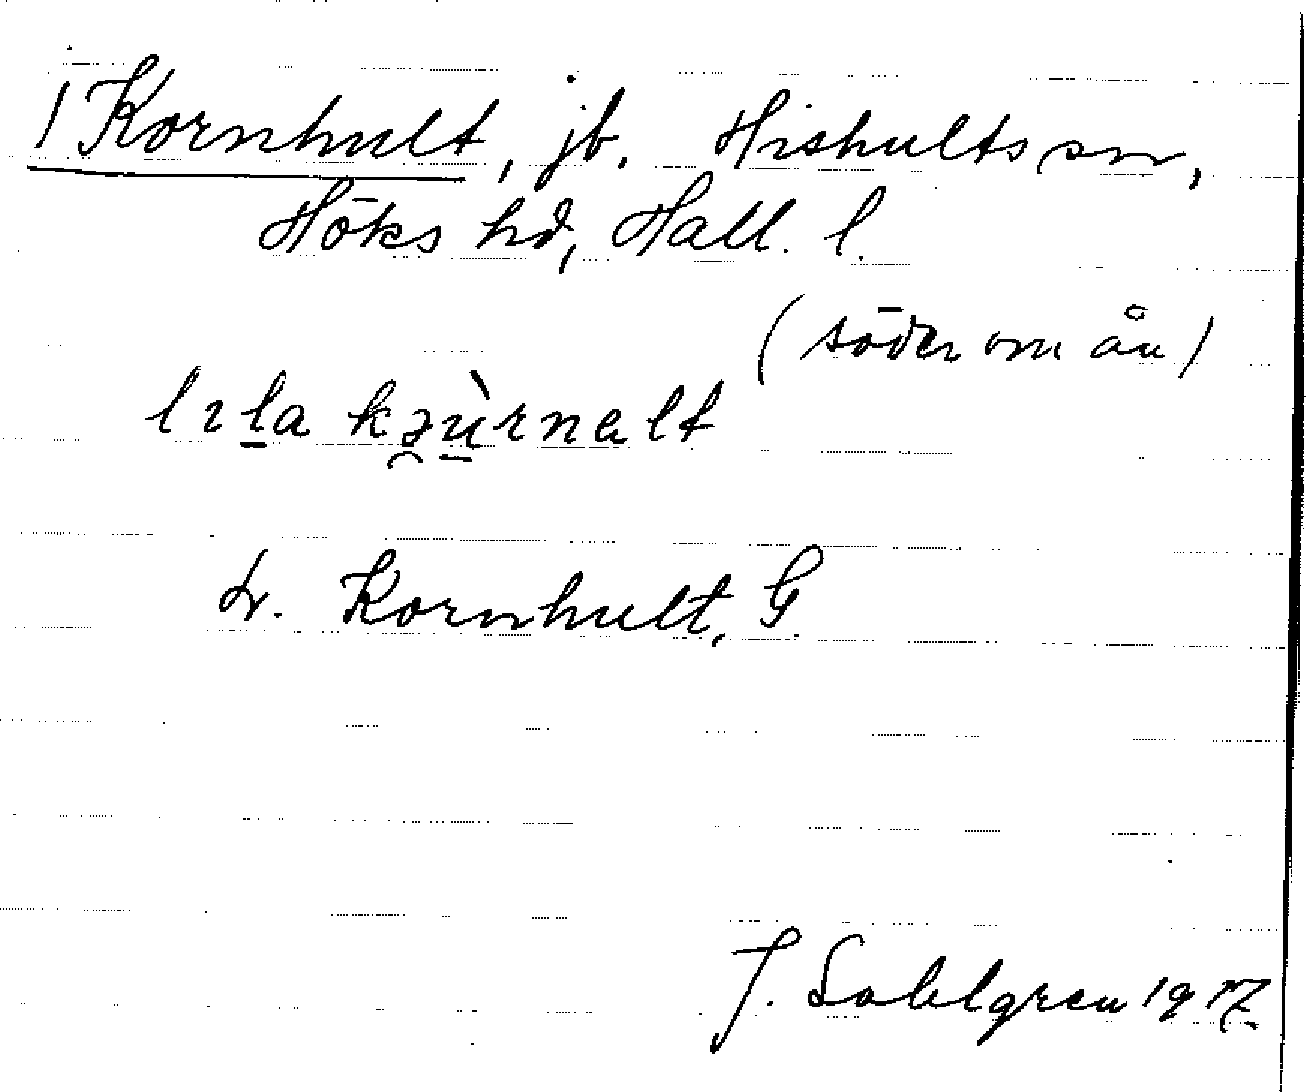 1 Kornhult, jb. Hishults sn,
Höks hd, Hall. l.
(söder om ån)
lɪla kəùrnalt
L. Kornhult, G
J. Sahlgren 19